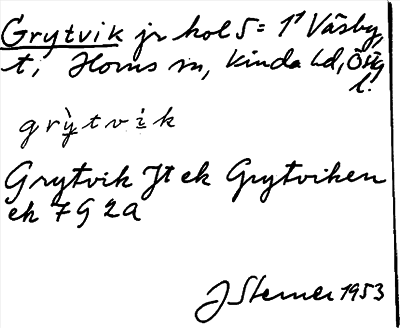 Grytvik jr kol 5 = 1¹ Väsby,
t, Horns sn, Kinda hd, Östg
l.
grỳtvik
Grytvik Jt ek Grytviken
ek 7 G 2a
J Sterner 1953